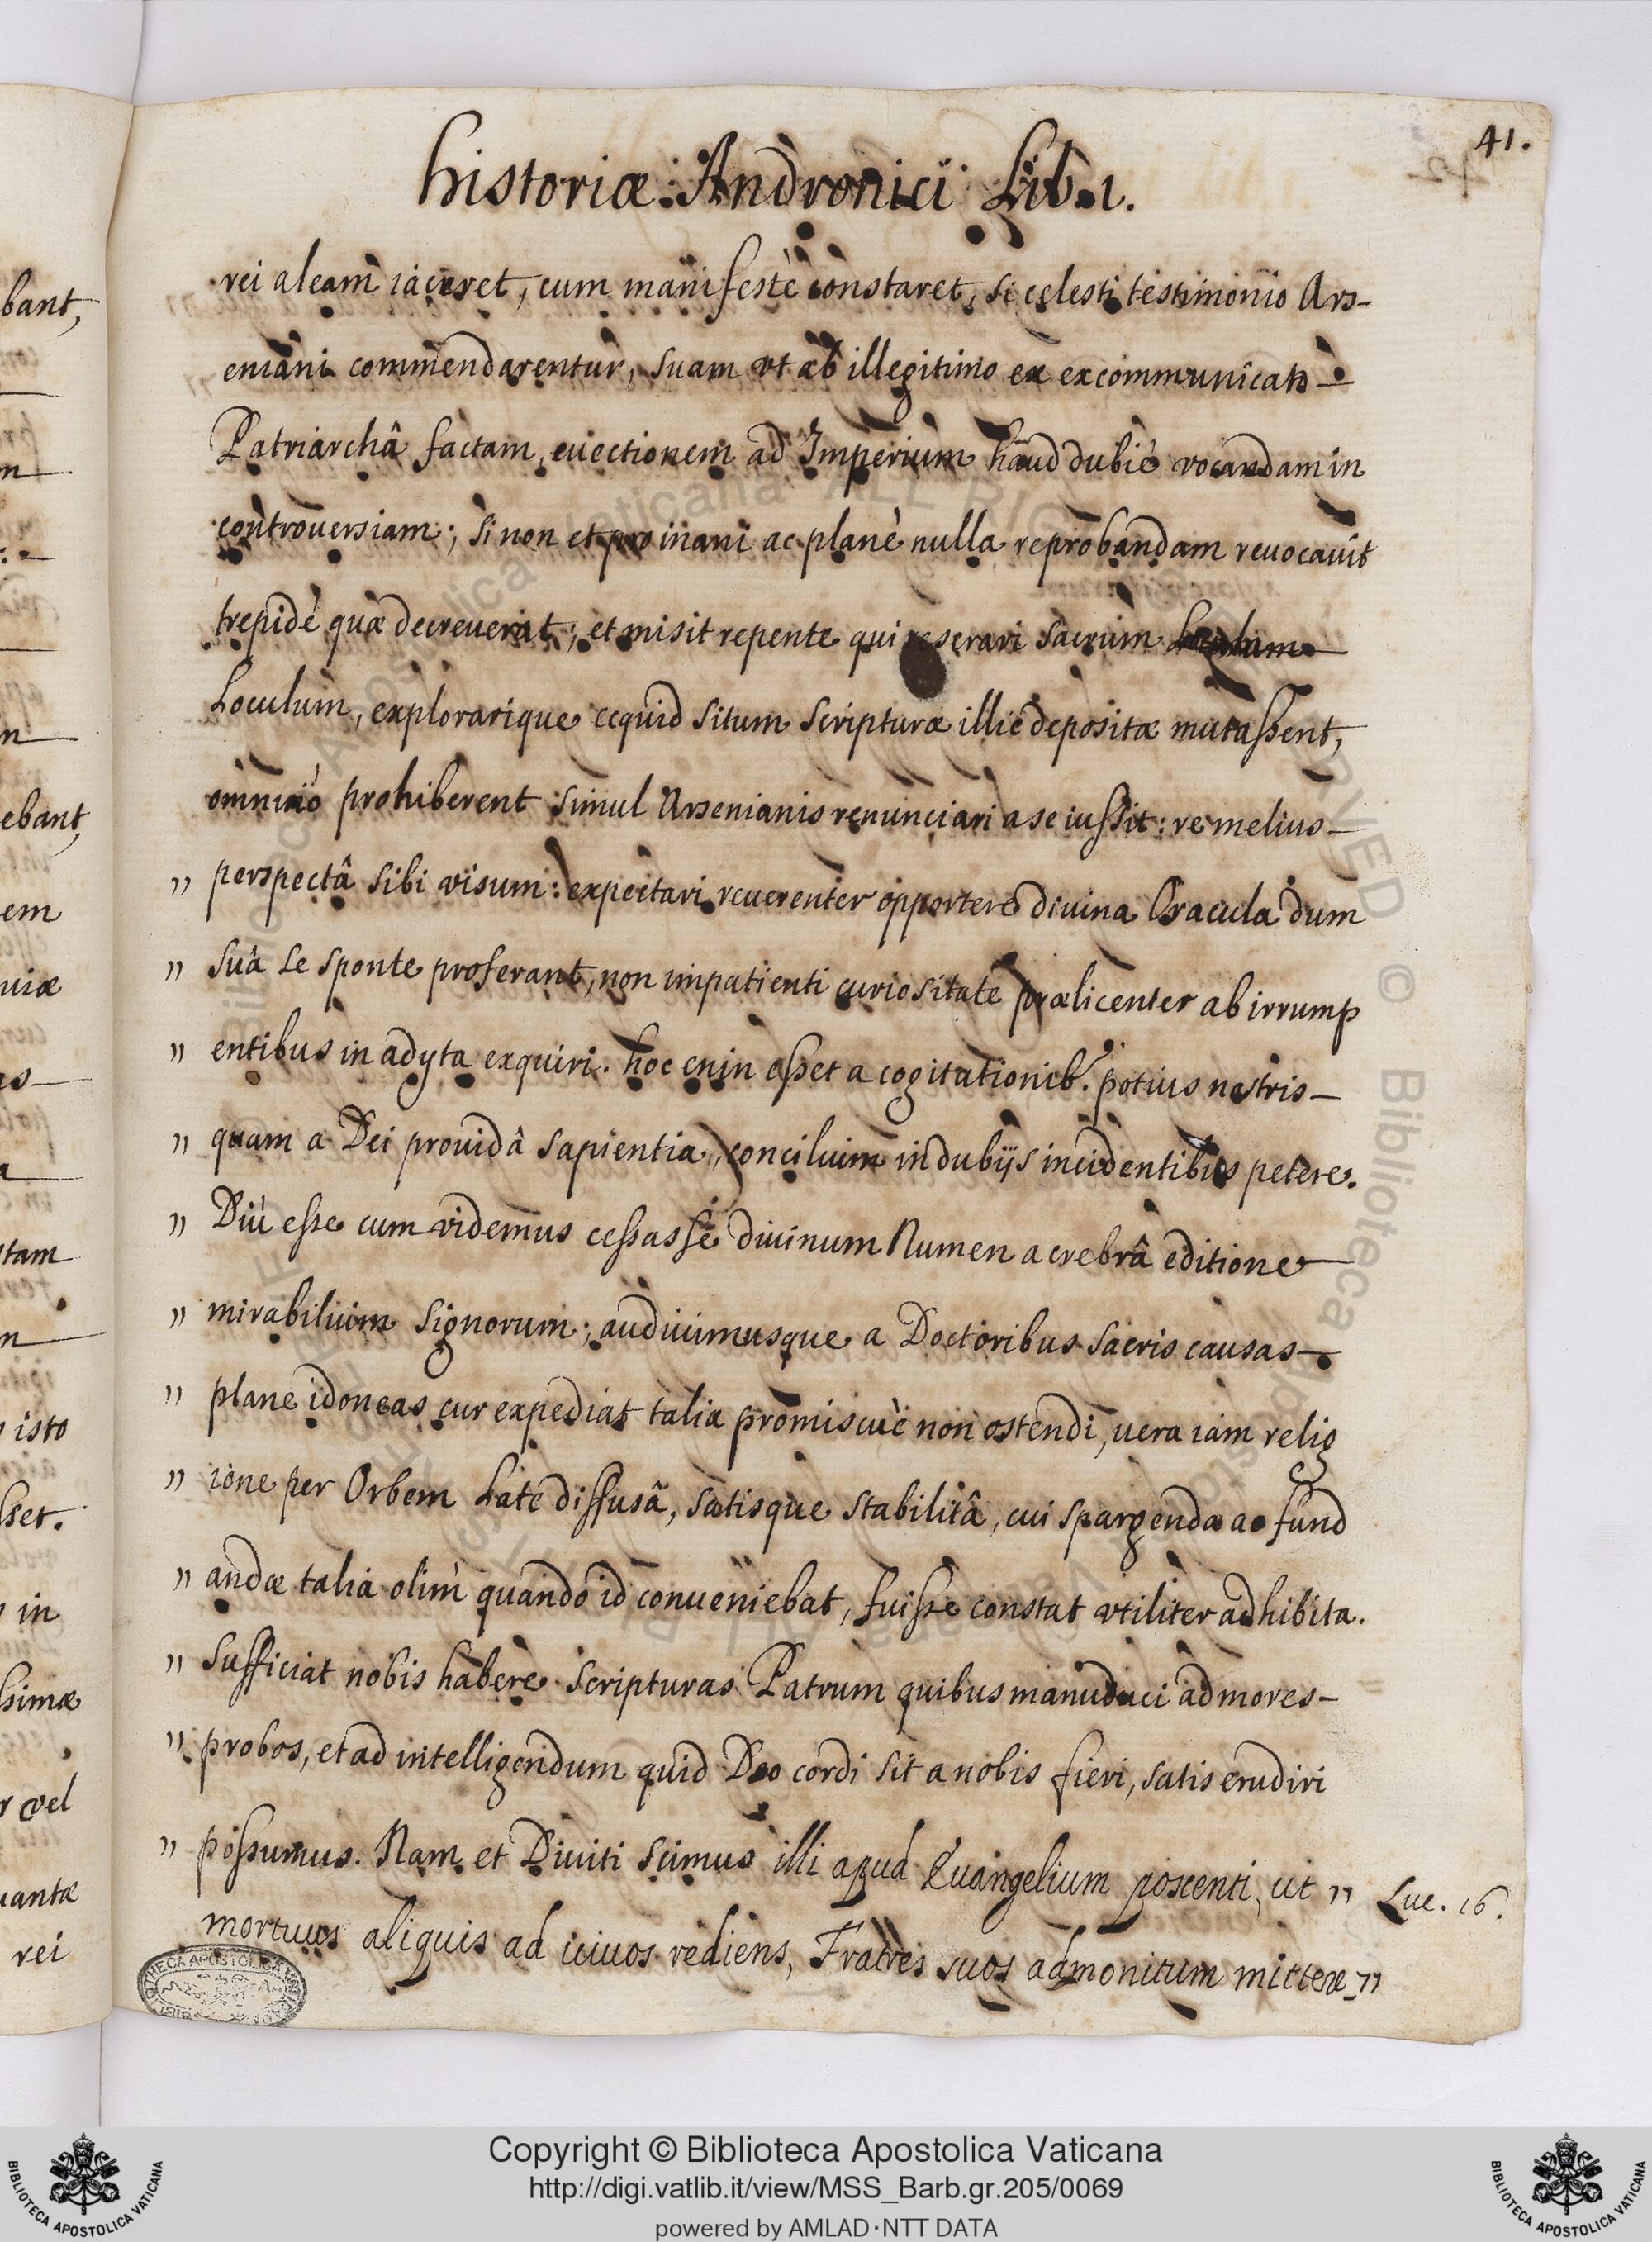 41.
Historiæ Andronici Lib. 1.
rei aleam iaceret, cum manifestè constaret, si cęlesti testimonio Ars-
eniani commendarentur, suam vt ab illegitimo ex excommunicato
Patriarchâ factam, euectionem ad Imperium haud dubiè vocandam in
controuersiam; si non et pro inani ac planè nulla reprobandam reuocauit
trepidè quæ decreuerat; et misit repente qui reserari sacrum
Loculum, explorarique ecquid situm scripturæ illic depositæ mutassent,
omnino prohiberent simul Arsenianis renunciari a se iussit: re melius
" perspectâ sibi visum: expectari reuerenter opportere diuina Oracula dum
" suâ se sponte proferant, non impatienti curiositate prælicenter ab irrump
" entibus in adyta exquiri. hoc enin esset a cogitationib. potius nostris
" quam a Dei prouidâ sapientia, concilium in dubijs incidentibus petere.
" Diù esse cum videmus cessasse diuinum Numen a crebrâ editione
" mirabilium signorum; audiuimusque a Doctoribus sacris causas
" plane idoneas cur expediat talia promiscuè non ostendi, uera iam relig
" ione per Orbem Latè diffusâ, satisque stabilitâ, cui spargendæ ac fund
" andæ talia olim quando id conueniebat, fuisse constat vtiliter adhibita.
" Sufficiat nobis habere scripturas Patrum quibus manuduci ad mores
" probos, et ad intelligendum quid Deo cordi sit a nobis fieri, satis erudiri
" possumus. Nam et Diuiti scimus illi apud Euangelium poscenti, ut " Luc. 16.
mortuus aliquis ad uiuos rediens, Fratres suos admonitum mitteræ "
bant,
n
n
ebant,
em
uiæ
as
a
tam
n
isto
sset.
in
ssimæ
r vel
uantæ
rei
Copyright © Biblioteca Apostolica Vaticana
http://digi.vatlib.it/view/MSS_Barb.gr.205/0069
powered by AMLAD·NTT DATA
BIBLIOTECA APOSTOLICA VATICANA
BIBLIOTECA APOSTOLICA VATICANA